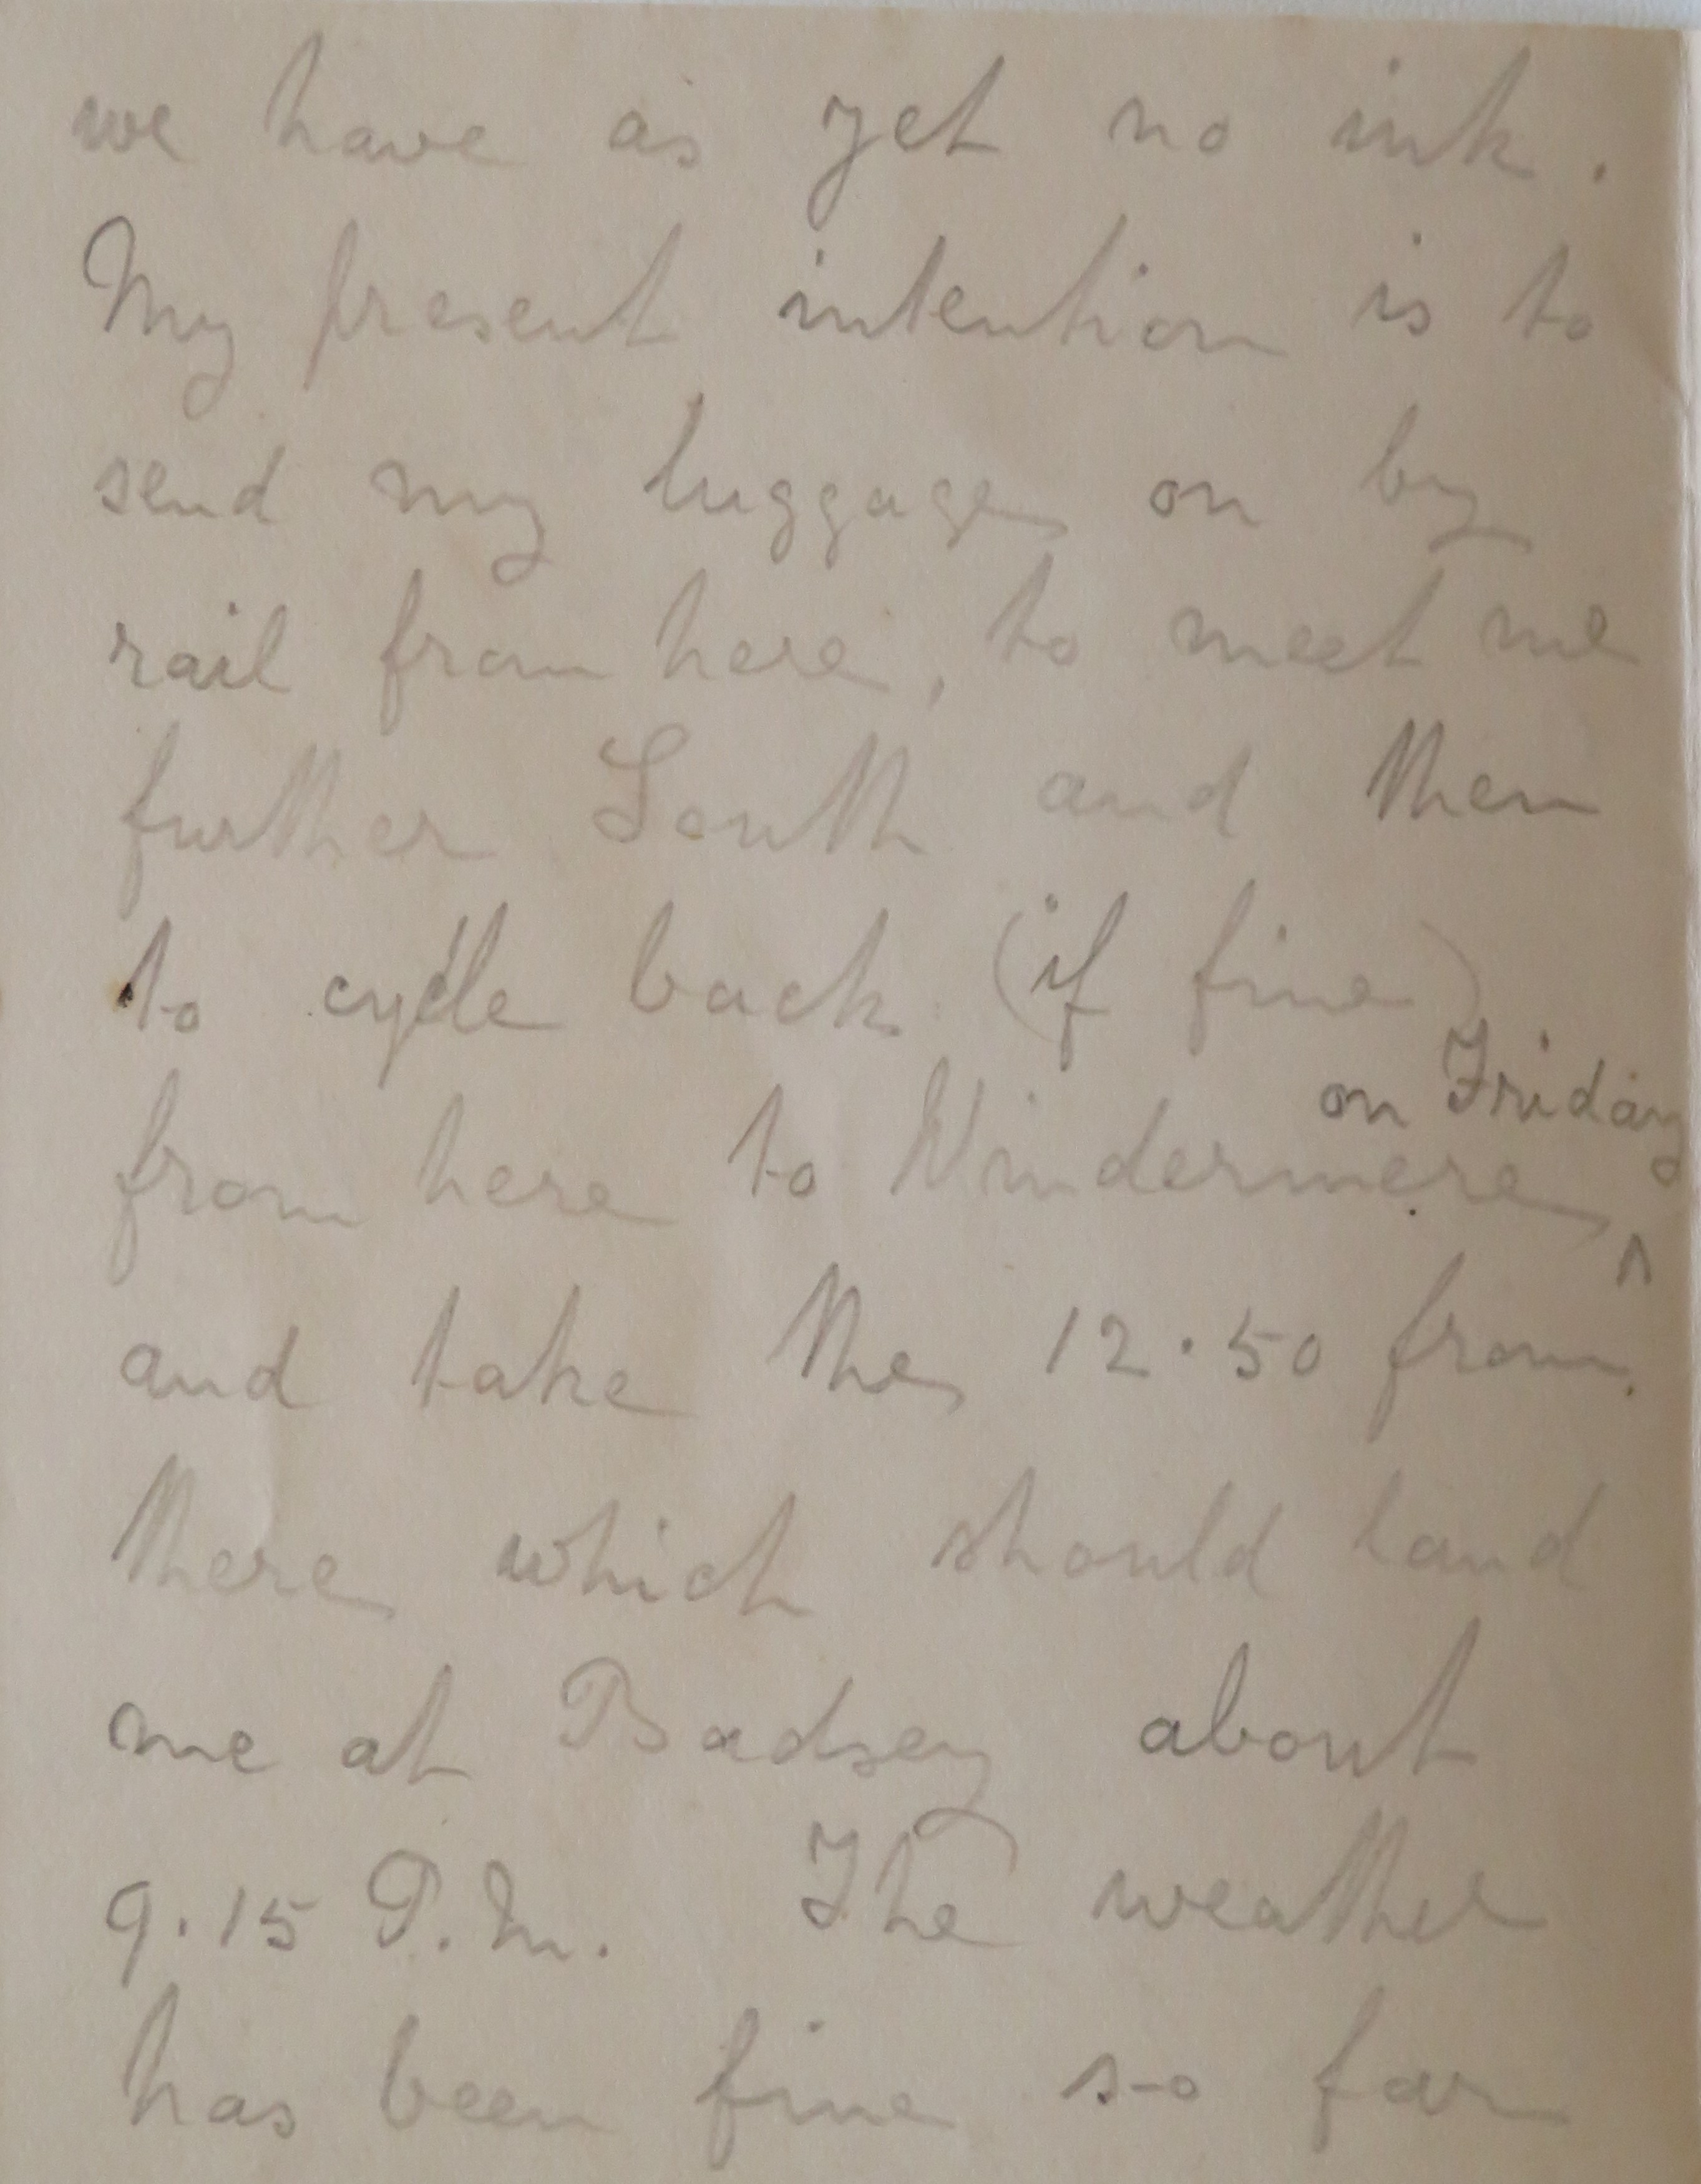 we have as yet no ink.
My present intention is to
send my luggage on by
rail from here, to meet me
further South and then
to cycle back (if fine)
on Friday
from here to Windermere ^
and take the 12.50 from
there which should land
me at Badsey about
9.15 P.M. The weather
has been fine so far